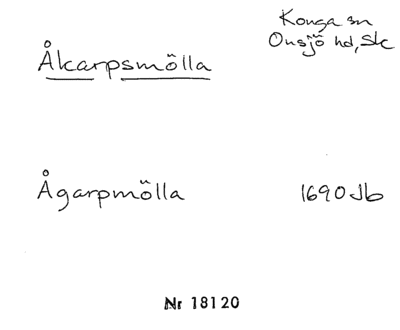 Åkarpsmölla
Konga sn
Onsjö hd, Sk
Ågarpmölla 1690 Jb
Nr 18120